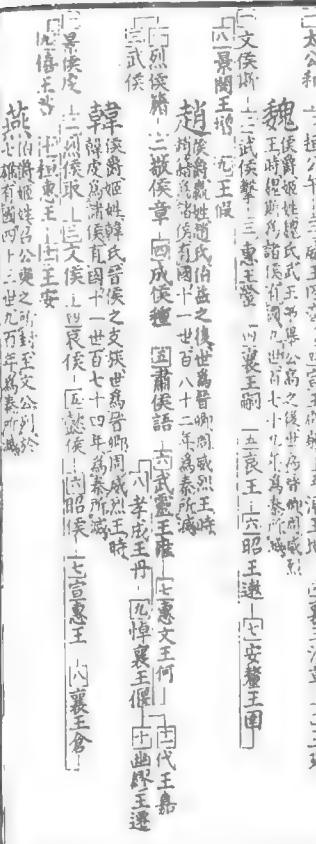 一太公和 二桓公午 三威王 四宣王 五湣王地 六襄王法章 七王建
魏侯爵姬姓魏氏武王弟畢公高之後世爲晉卿周威烈
王時俱賜爲諸侯有國九世百七十九年爲秦所滅
一文侯斯 二武侯擊 三惠王罃 四襄王嗣 五哀王 六昭王遫 七安釐王圉
八景閔王增 九王假
趙侯爵嬴姓趙氏伯益之後世爲晉卿周威烈王時
爲諸侯有國十一世百八十二年爲秦所滅
一烈侯籍 二敬侯章 四成侯種 五肅侯語 六武靈王雍 七惠文王何
三武侯 八孝成王丹 九悼襄王偃 十幽繆王遷 十一代王嘉
韓侯爵姬姓韓氏晉侯之支族世爲晉卿周威烈王時
韓虔爲諸侯有國十一世百七十四年爲秦所滅
一景侯虔 二烈侯取 三文侯 四哀侯 五懿侯 六昭侯 七宣惠王 八襄王倉
九僖王咎 十桓惠王 十一王安
燕伯爵姬姓召公奭之所封至文公列於
七雄有國四十三世九百年爲秦所滅